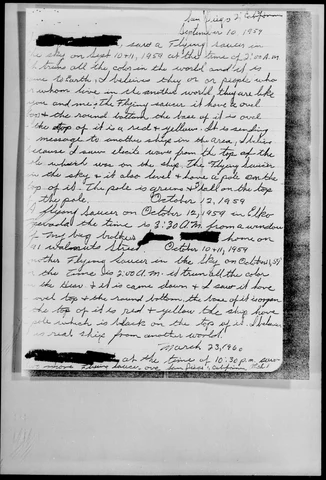 San Diego 2, California
September 10 1959
, saw a Flying Saucer in
sky on Sept 10+11, 1959 at the time of 2:00 A.M.
it turns all the color in the world and let's
to Earth, I believes they or or people who
whom live in the another world, they are like
you and me. The Flying saucer it have a oval
top & the round bottom the base of it is over
the top of it is a red & yellow. It is sending
message to another ships in the area, I
because I saw electric wave from the top of the
pole which was on the ship. The Flying Saucer
in the sky & it also land & have a pole on the
top of it. The pole is greens & ball on the top
of the pole. October 12, 1959
A flying Saucer on October 12, 1959 in Elko
Nevada the time is 3:30 A.M. from a window
of my big brother's home on
walnuts Street. October 10+11, 1959
another Flying Saucer in the Sky on Oct 10+11, 59
the Time is 2:00 A.M. it turn all the color
the & it is came down & I saw it have
oval top & the round bottom, the base of it
the top of it is red & yellow the ship have
pole which is black on the top of it. I believe
is real ship from another world.
March 23, 1960
at the time of 10:30 p.m. saw
more Flying Saucer, over San Diego, California